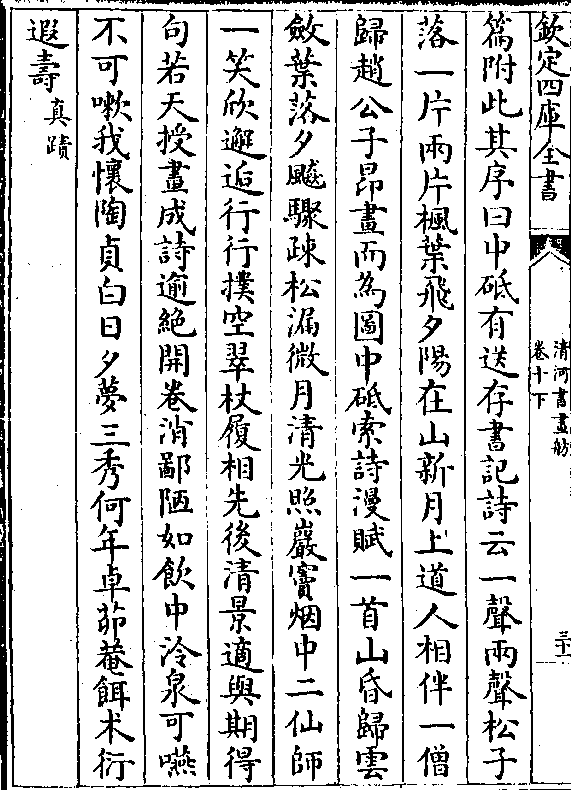 欽定四庫全書
清河書畫舫
卷十下
三十一
篇附此其序曰中砥有送存書記詩云一聲兩聲松子
落一片兩片楓葉飛夕陽在山新月上道人相伴一僧
歸趙公子昂畫而為圖中砥索詩漫賦一首山昏歸雲
斂葉落夕飈驟疎松漏微月清光照巖竇烟中二仙師
一笑欣邂逅行行撲空翠杖履相先後清景適與期得
句若天授畫成詩逾絶開卷消鄙陋如飲中泠泉可嚥
不可嗽我懷陶貞白日夕夢三秀何年卓茆菴餌术衍
遐壽真蹟